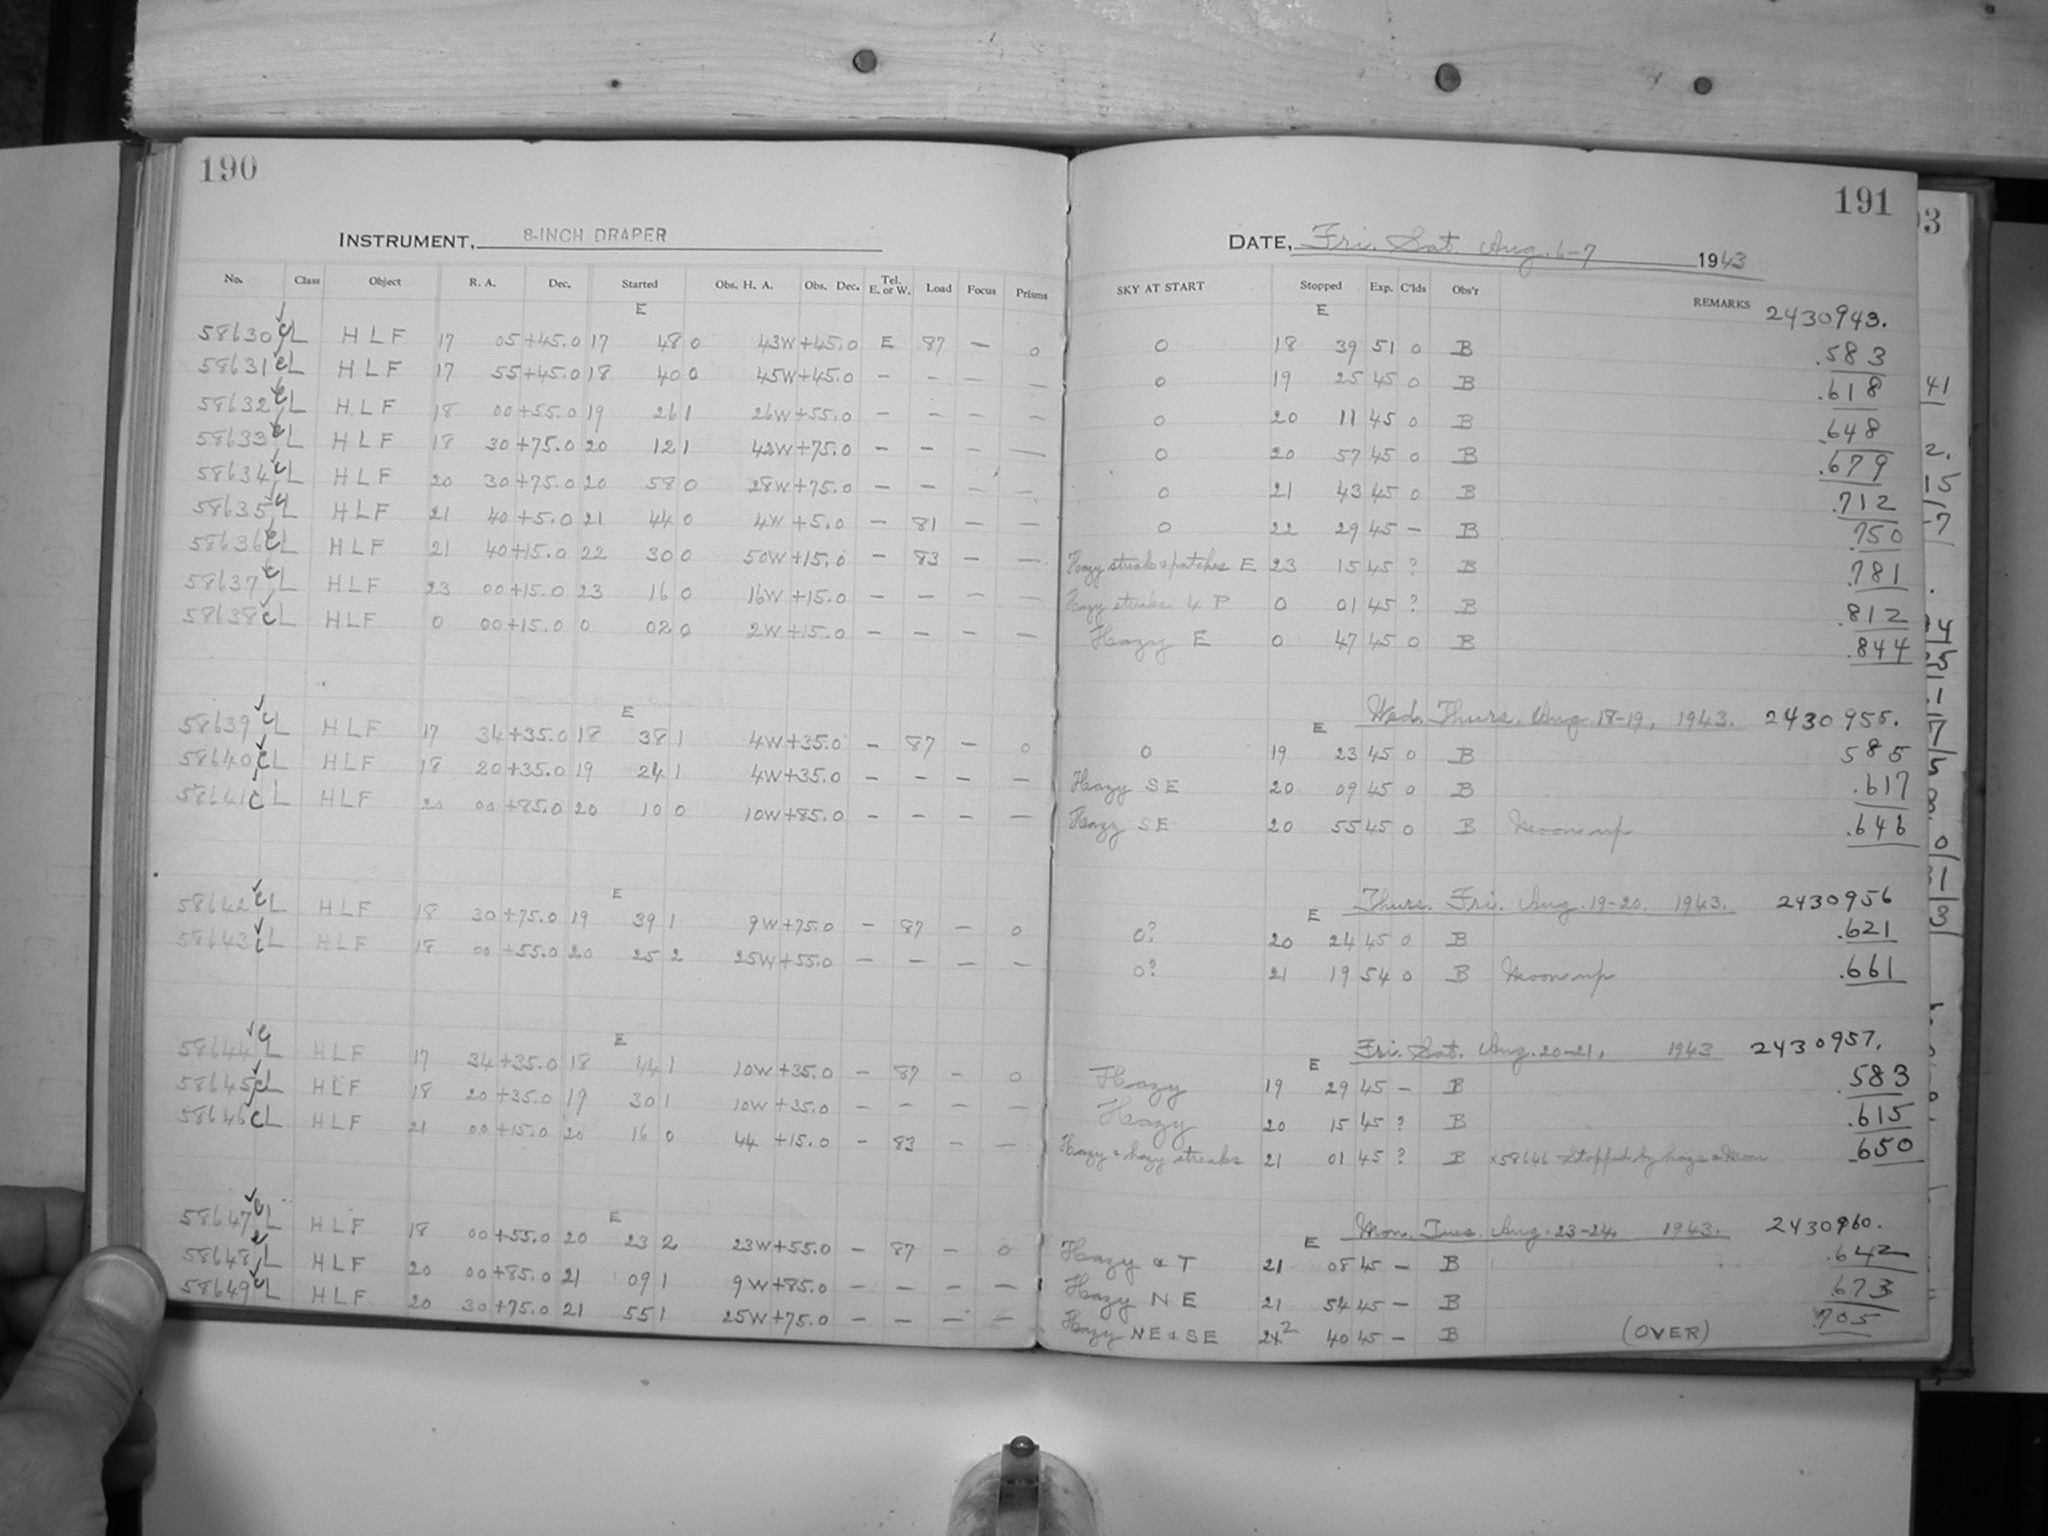 190
INSTRUMENT, 8-INCH DRAPER
No. Class Object R. A. Dec. Started Obs. H. A. Obs. Dec. Tel. E. or W. Load Focus Prisms
E
58630 CL HLF 17 05 +45.0 17 48 0 43W +45.0 E 87 — 0
58631 CL HLF 17 55 +45.0 18 40 0 45W +45.0 — — — —
58632 CL HLF 18 00 +55.0 19 26 1 26W +55.0 — — — —
58633 CL HLF 18 30 +75.0 20 12 1 42W +75.0 — — — —
58634 CL HLF 20 30 +75.0 20 58 0 28W +75.0 — — — —
58635 CL HLF 21 40 +5.0 21 44 0 4W +5.0 — 81 — —
58636 CL HLF 21 40 +15.0 22 30 0 50W +15.0 — 83 — —
58637 CL HLF 23 00 +15.0 23 16 0 16W +15.0 — — — —
58638 CL HLF 0 00 +15.0 0 02 0 2W +15.0 — — — —
E
58639 CL HLF 17 34 +35.0 18 38 1 4W +35.0 — 87 — 0
58640 CL HLF 18 20 +35.0 19 24 1 4W +35.0 — — — —
58641 CL HLF 20 00 +85.0 20 10 0 10W +85.0 — — — —
E
58642 CL HLF 18 30 +75.0 19 39 1 9W +75.0 — 87 — 0
58643 CL HLF 18 00 +55.0 20 25 2 25W +55.0 — — — —
E
58644 CL HLF 17 34 +35.0 18 44 1 10W +35.0 — 87 — 0
58645 CL HLF 18 20 +35.0 19 30 1 10W +35.0 — — — —
58646 CL HLF 21 00 +15.0 20 16 0 44 +15.0 — 83 — —
E
58647 CL HLF 18 00 +55.0 20 23 2 23W +55.0 — 87 — 0
58648 CL HLF 20 00 +85.0 21 09 1 9W +85.0 — — — —
58649 CL HLF 20 30 +75.0 21 55 1 25W +75.0 — — — —
191
DATE, Fri. Sat. Aug. 6-7 1943
SKY AT START Stopped Exp. C'lds Obs'r REMARKS 2430943.
E
0 18 39 51 0 B .583
0 19 25 45 0 B .618
0 20 11 45 0 B .648
0 20 57 45 0 B .679
0 21 43 45 0 B .712
0 22 29 45 — B .750
Hazy streaks & patches E 23 15 45 ? B .781
Hazy streaks & P 0 01 45 ? B .812
Hazy E 0 47 45 0 B .844
E Wed. Thurs. Aug. 18-19, 1943. 2430955.
0 19 23 45 0 B 585
Hazy SE 20 09 45 0 B .617
Hazy SE 20 55 45 0 B Moon up .646
E Thurs. Fri. Aug. 19-20. 1943. 2430956
0? 20 24 45 0 B .621
0? 21 19 54 0 B Moon up .661
E Fri. Sat. Aug. 20-21, 1943 2430957.
Hazy 19 29 45 — B .583
Hazy 20 15 45 ? B .615
Hazy & hazy streaks 21 01 45 ? B x58646 Stopped by haze & Moon .650
E Mon. Tues. Aug. 23-24, 1943. 2430960.
Hazy & T 21 08 45 — B .642
Hazy NE 21 54 45 — B .673
Hazy NE & SE 22 40 45 — B (OVER) .705